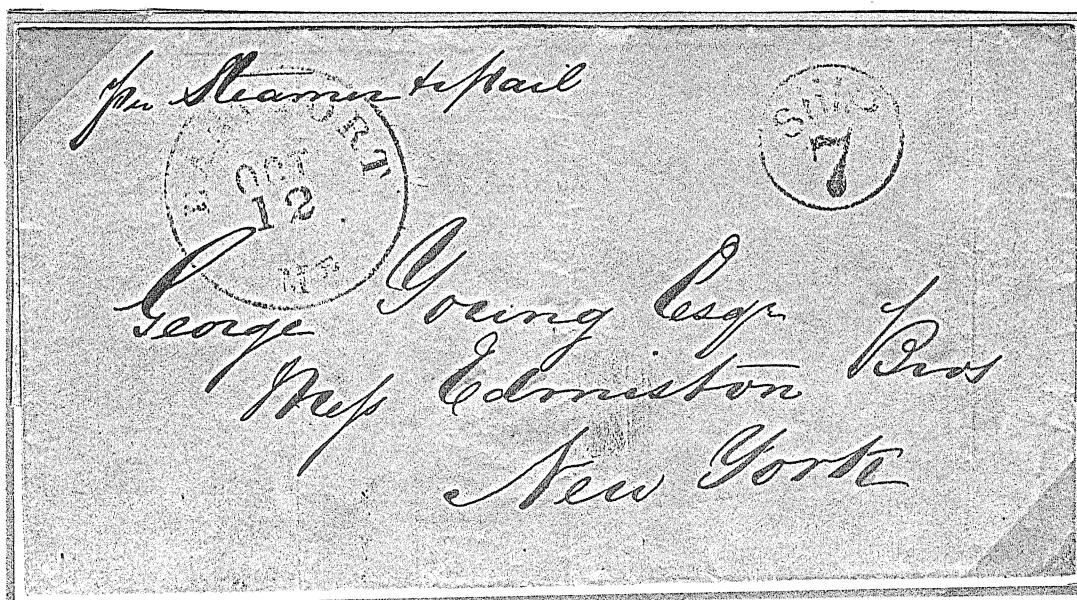 per Steamer & Mail
EASTPORT
OCT
12
ME
SHIP
7
George Young Esqr
Mess Edmiston Bros
New York